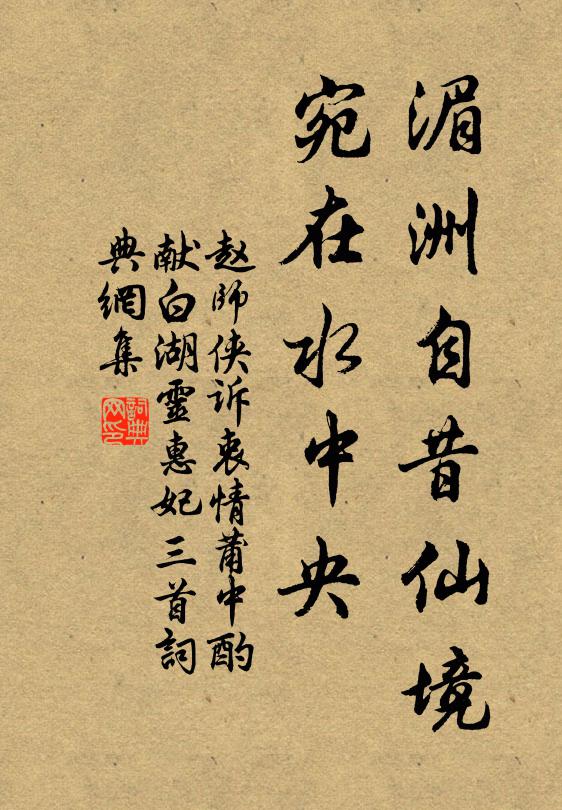 湄洲自昔仙境
宛在水中央
赵師侠诉衷情莆中酌
献白湖靈惠妃三首詞
典網集
詞典网印